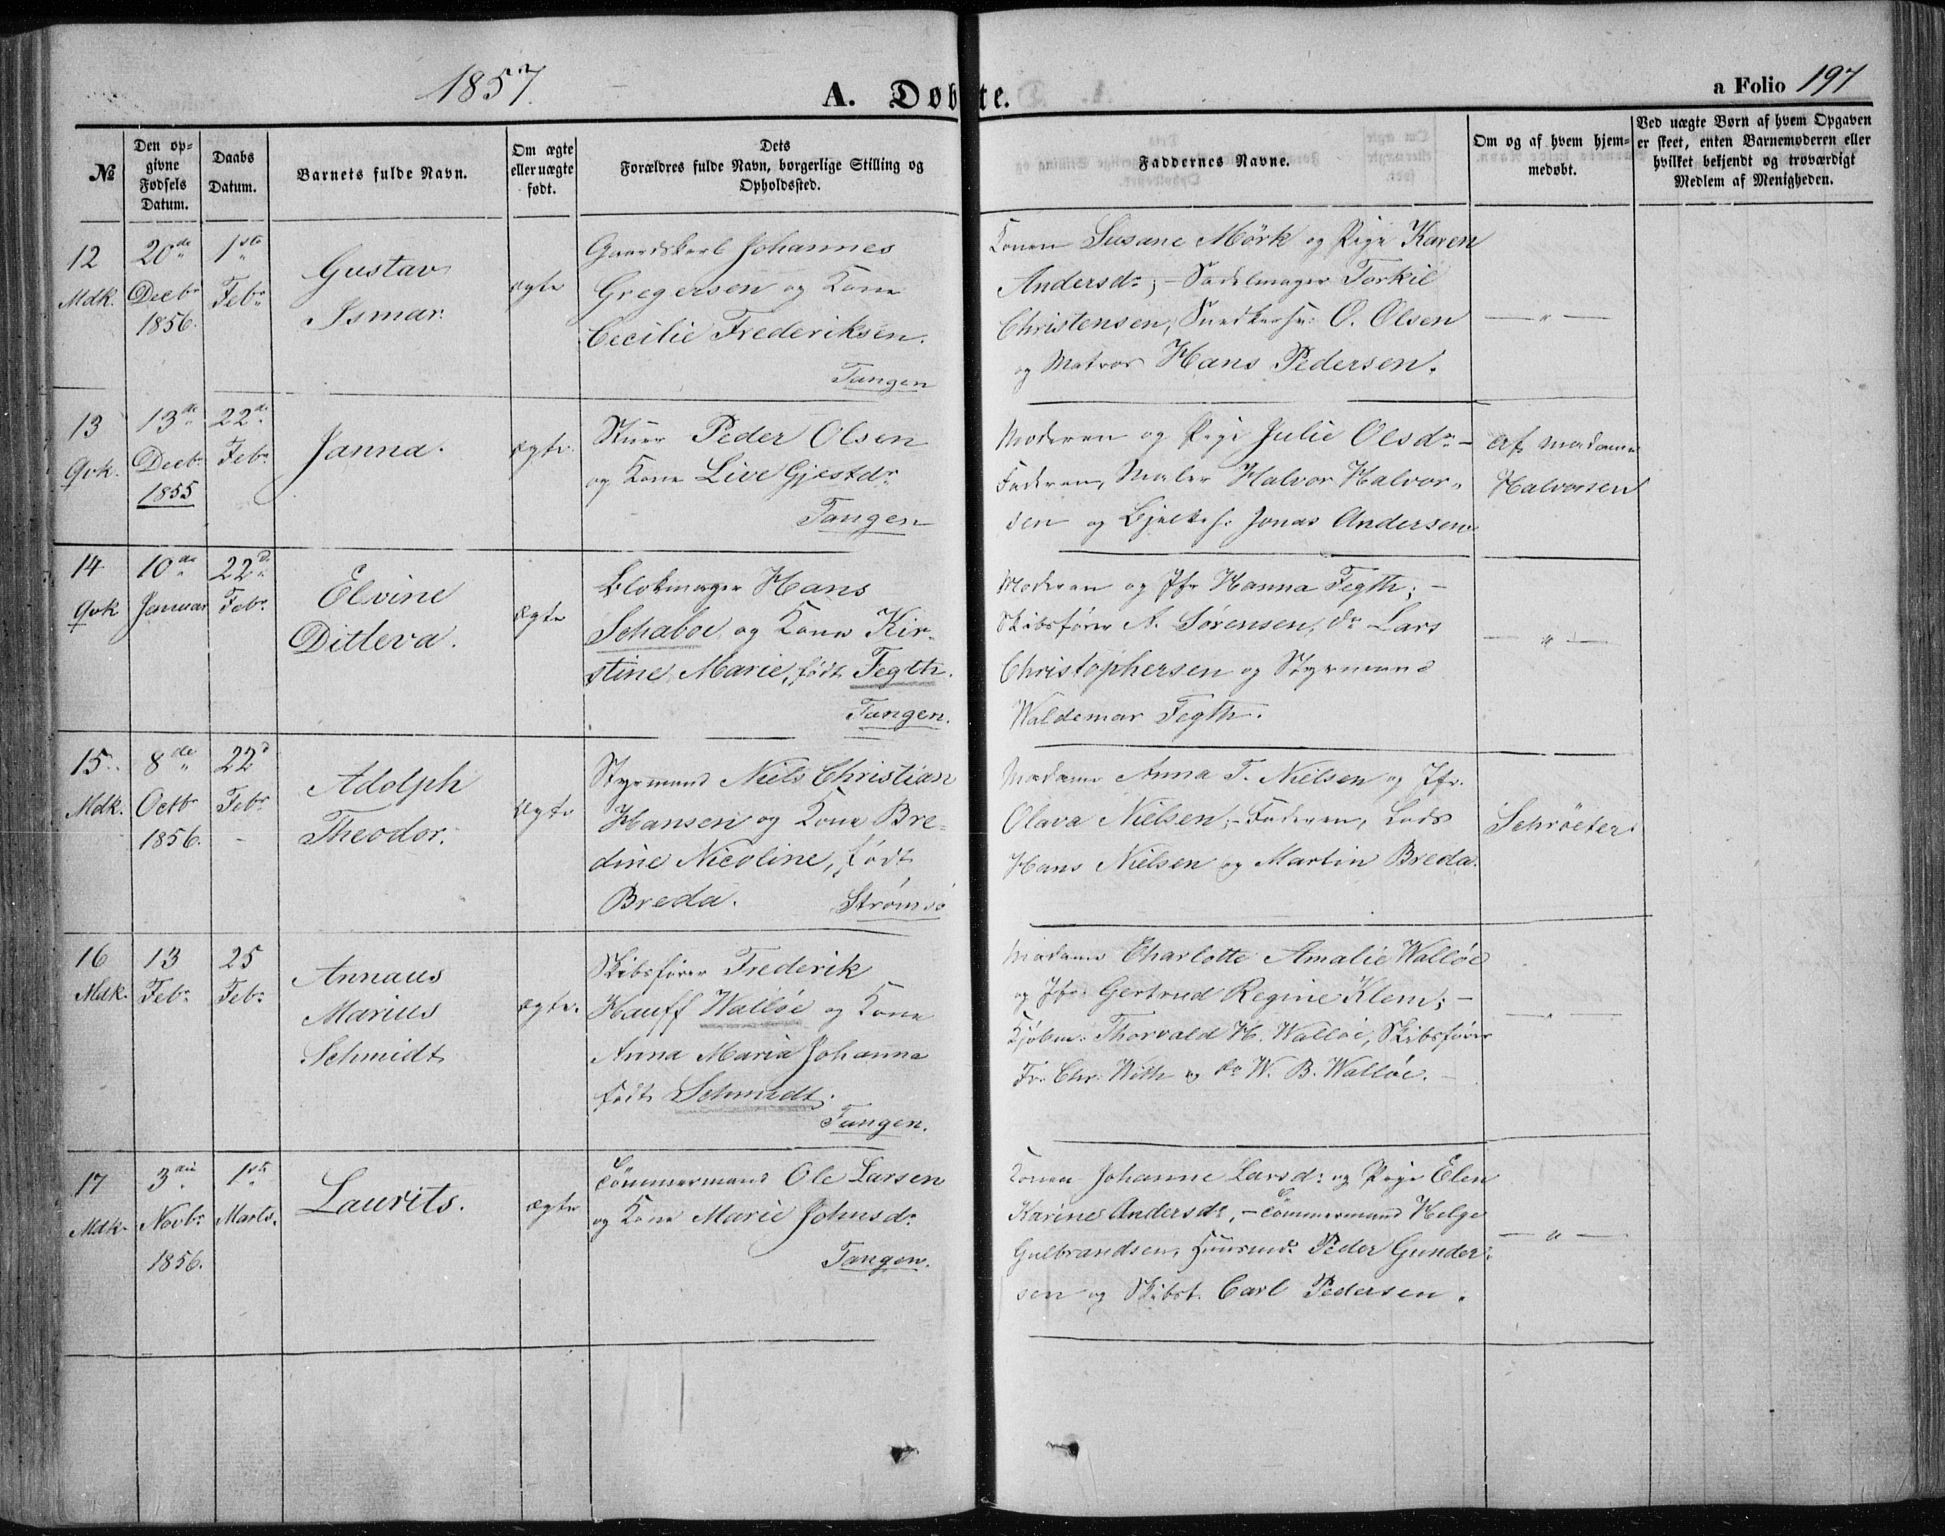 1857.
A. Døbte.
a Folio 197
№
Den op-
givne
Fødsels
Datum.
Daabs
Datum.
Barnets fulde Navn.
Om ægte
eller uægte
født.
Dets
Forældres fulde Navn, borgerlige Stilling og
Opholdssted.
Faddernes Navne.
Om og af hvem hjem-
medøbt.
Ved uægte Børn af hvem Opgaven
er skeet, enten Barnemoderen eller
hvilket bekjendt og troværdigt
Medlem af Menigheden.
12
Mdk.
20de
Decbr
1856.
1ste
Febr.
Gustav
Ismar.
ægte
Gaardskarl Johannes
Gregersen og Kone
Cecilie Frederiksen.
Tangen
Konen Susane Mörk og Pige Karen
Andersdr; – Sadelmager Torkil
Christensen, Snedkersv. O. Olsen
og Matros Hans Pedersen.
— " —
13
Qvk.
13de
Decbr
1855
22de
Febr.
Janna.
ægte.
Stuer Peder Olsen
og Kone Live Gjestdr
Tangen
Moderen og Pige Julie Olsdr –
Faderen, Maler Halvor Halvor-
sen og Jonas Andersen
af Madame
Halvorsen
14
Qvk
10de
Januar
22d
Febr.
Elvine
Ditleva.
ægte
Blokmager Hans
Schaboe og Kone Kir-
stine Marie, født Fegth.
Tangen.
Moderen og Jfr Hanna Fegth; –
Skibsfører A. Sørensen, do Lars
Christophersen og Styrmand
Waldemar Fegth.
— " —
15.
Mdk.
8de
Octbr
1856.
22d
Febr
Adolph
Theodor.
ægte
Styrmand Niels Christian
Hansen og Kone Bre-
dine Nicoline, født
Breda. Strømsø
Madame Anna T. Nielsen og Jfr.
Olava Nielsen; – Faderen, Lods
Hans Nielsen og Martin Breda.
Schröeter
16
Mdk.
13
Febr.
25
Febr.
Annaus
Marius
Schmidt
ægte.
Skibsfører Frederik
Hauff Walløe og Kone
Anna Maria Johanna
født Schmidt.
Tangen.
Madame Charlotte Amalie Walløe
og Jfr. Gertrud Regine Klem; –
Kjøbm. Thorvald H. Walløe, Skibsfører
Fr. Chr. With og do W. B. Walløe. –
— " —
17
Mdk.
3die
Novbr
1856.
1ste
Marts.
Laurits.
ægte
Tømmermand Ole Larsen
og Kone Marie Johnsdr
Tangen.
Konen Johanne Larsdr: og Pige Elen
Karine Andersdr, – Tømmermand Helge
Gulbrandsen, Huusmd. Peder Gunder-
sen og Skibst. Carl Pedersen.
— " —